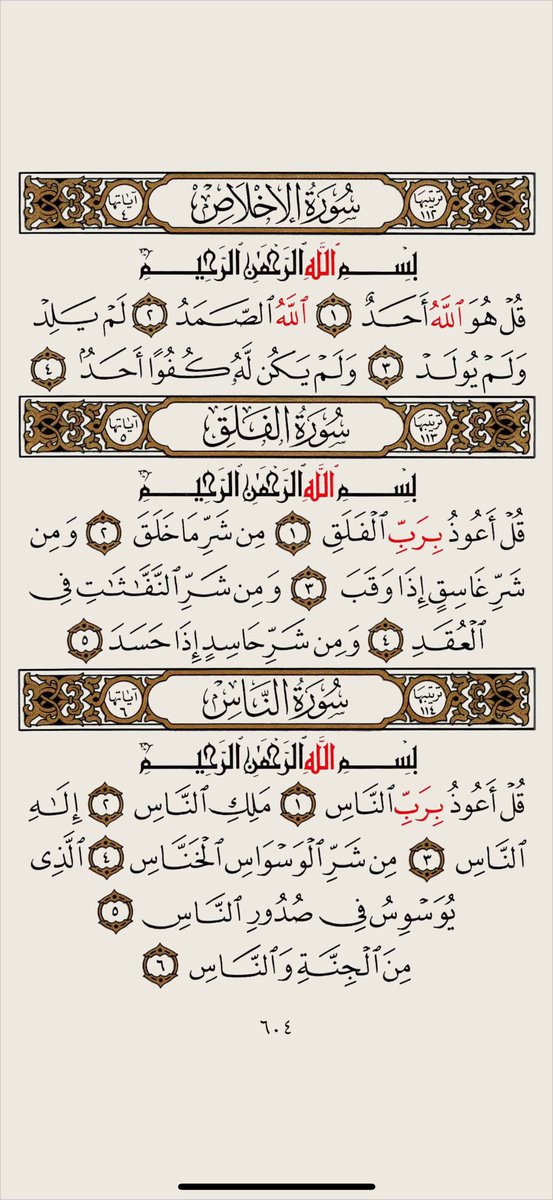 ترتيبها ١١٢ سُورَةُ الإِخْلَاصِ آيَاتها ٤
بِسْمِ ٱللَّهِ ٱلرَّحْمَٰنِ ٱلرَّحِيمِ
قُلْ هُوَ ٱللَّهُ أَحَدٌ ١ ٱللَّهُ ٱلصَّمَدُ ٢ لَمْ يَلِدْ
وَلَمْ يُولَدْ ٣ وَلَمْ يَكُن لَّهُۥ كُفُوًا أَحَدٌۢ ٤
ترتيبها ١١٣ سُورَةُ الفَلَقِ آيَاتها ٥
بِسْمِ ٱللَّهِ ٱلرَّحْمَٰنِ ٱلرَّحِيمِ
قُلْ أَعُوذُ بِرَبِّ ٱلْفَلَقِ ١ مِن شَرِّ مَا خَلَقَ ٢ وَمِن
شَرِّ غَاسِقٍ إِذَا وَقَبَ ٣ وَمِن شَرِّ ٱلنَّفَّٰثَٰتِ فِى
ٱلْعُقَدِ ٤ وَمِن شَرِّ حَاسِدٍ إِذَا حَسَدَ ٥
ترتيبها ١١٤ سُورَةُ النَّاسِ آيَاتها ٦
بِسْمِ ٱللَّهِ ٱلرَّحْمَٰنِ ٱلرَّحِيمِ
قُلْ أَعُوذُ بِرَبِّ ٱلنَّاسِ ١ مَلِكِ ٱلنَّاسِ ٢ إِلَٰهِ
ٱلنَّاسِ ٣ مِن شَرِّ ٱلْوَسْوَاسِ ٱلْخَنَّاسِ ٤ ٱلَّذِى
يُوَسْوِسُ فِى صُدُورِ ٱلنَّاسِ ٥
مِنَ ٱلْجِنَّةِ وَٱلنَّاسِ ٦
٦٠٤